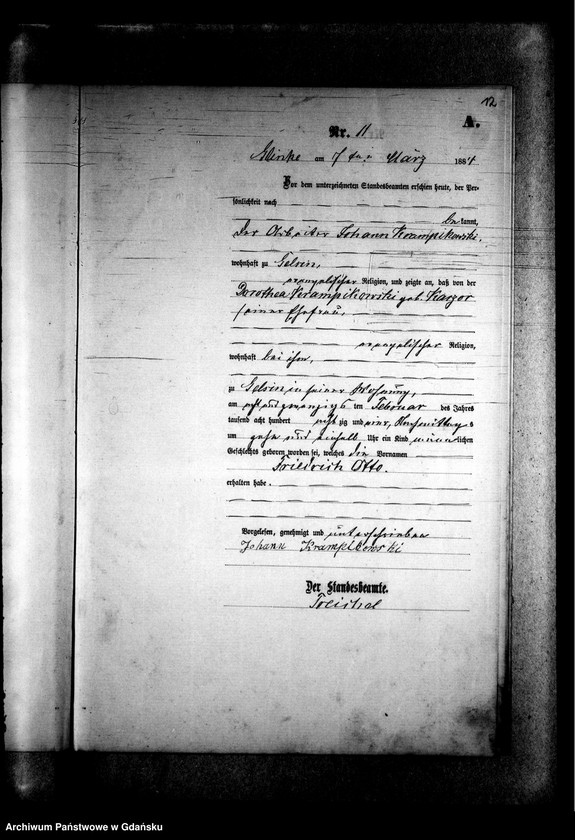 12
A.
Nr. 11
am 7ten März 1884
Vor dem unterzeichneten Standesbeamten erschien heute, der Per-
sönlichkeit nach
bekannt,
der Arbeiter Johann Krampikowski,
wohnhaft zu Gelsin,
evangelischer Religion, und zeigte an, daß von der
Dorothea Krampikowski geb.
seiner Ehefrau,
evangelischer Religion,
wohnhaft bei ihm,
zu Gelsin in seiner Wohnung,
am acht und zwanzigsten Februar des Jahres
tausend acht hundert achtzig und vier, Nachmittags
um zehn und einhalb Uhr ein Kind männlichen
Geschlechts geboren worden sei, welches die Vornamen
Friedrich Otto
erhalten habe.
Vorgelesen, genehmigt und unterschrieben
Johann Krampikowski
Der Standesbeamte.
Archiwum Państwowe w Gdańsku